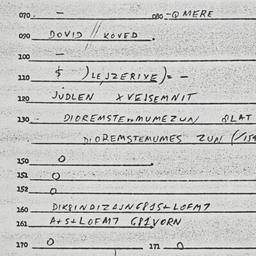 070. – 080 – Q MERE
090 DOVID // KOVED .
100 –
110 $ ) LE,SZERIVE ) = –
120 JUDLEN XVEISEMNIT
130 . DIOREMSTE MUMEZUN QLAT
DIOREMSTEMUMES ZUN
150 0 .
151 0
152 0
160 DIKSINDIZAJNG81S+LOFM7
161 A+S+LOFM7 G81VORN
170 0 171 0